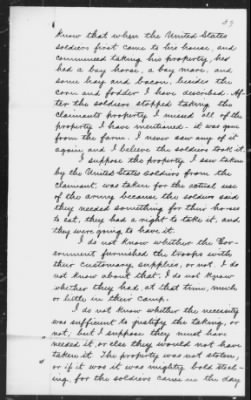 know that when the United States
soldiers first came to his house, and
commenced taking his property, he
had a bay horse, a bay mare, and
some hay and bacon, besides the
corn and fodder I have described. Af-
ter the soldiers stopped taking the
claimants property I missed all of the
property I have mentioned - it was gone
from the farm. I never saw any of it
again and I believe the soldiers took it.
I suppose the property I saw taken
by the United States soldiers from the
claimant, was taken for the actual use
of the army because the soldiers said
they needed something for their horses
to eat, they had a right to take it, and
they were going to have it.
I do not know whether the Gov-
ernment furnished the troops with
their customary supplies, or not. I do
not know about that. I do not know
whether they had, at that time, much
or little in their camp.
I do not know whether the necessity
was sufficient to justify the taking, or
not, but I suppose they must have
needed it, or else they would not have
taken it. The property was not stolen,
or if it was it was mighty bold steal-
ing, for the soldiers came in the day